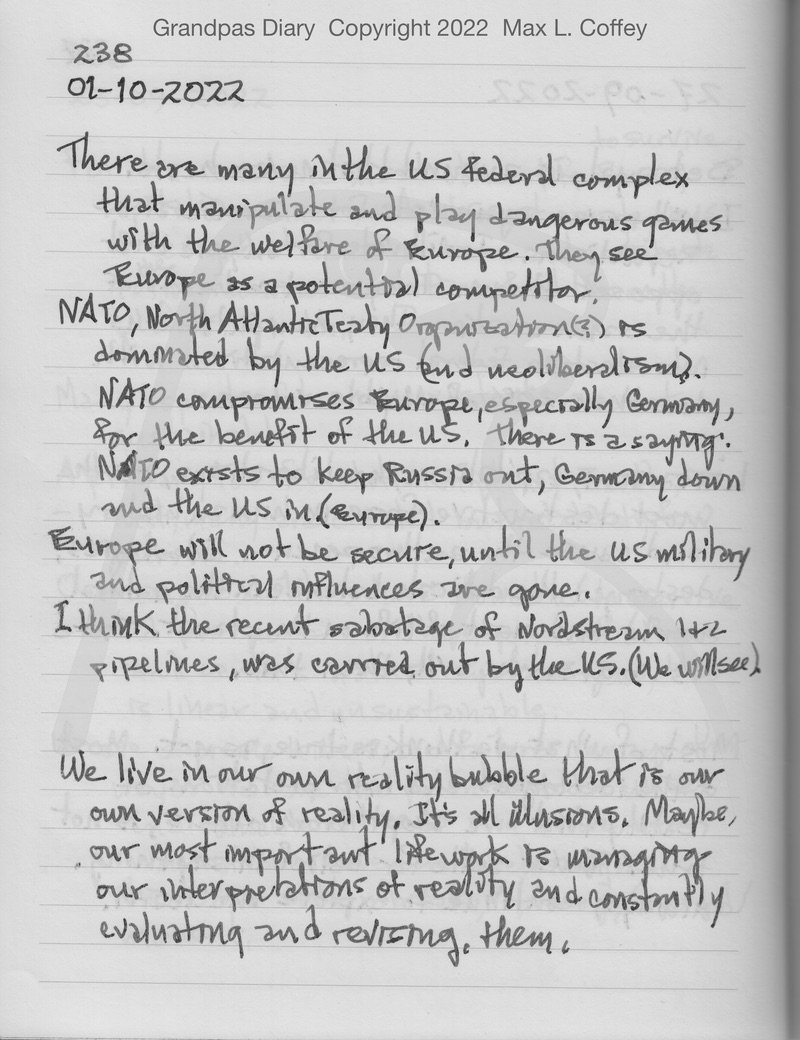 Grandpas Diary Copyright 2022 Max L. Coffey
238
01-10-2022
There are many in the US federal complex
that manipulate and play dangerous games
with the welfare of Europe. They see
Europe as a potential competitor.
NATO, North Atlantic Teaty Organization(?) is
dominated by the US (and neoliberalism).
NATO compromises Europe, especially Germany,
for the benefit of the US. There is a saying:
NATO exists to keep Russia out, Germany down
and the US in.(Europe).
Europe will not be secure, until the US military
and political influences are gone.
I think the recent sabatage of Nordstream 1+2
pipelines, was carried out by the US. (We will see).
We live in our own reality bubble that is our
own version of reality. It's all illusions. Maybe,
our most important lifework is managing
our interpretations of reality and constantly
evaluating and revising them.